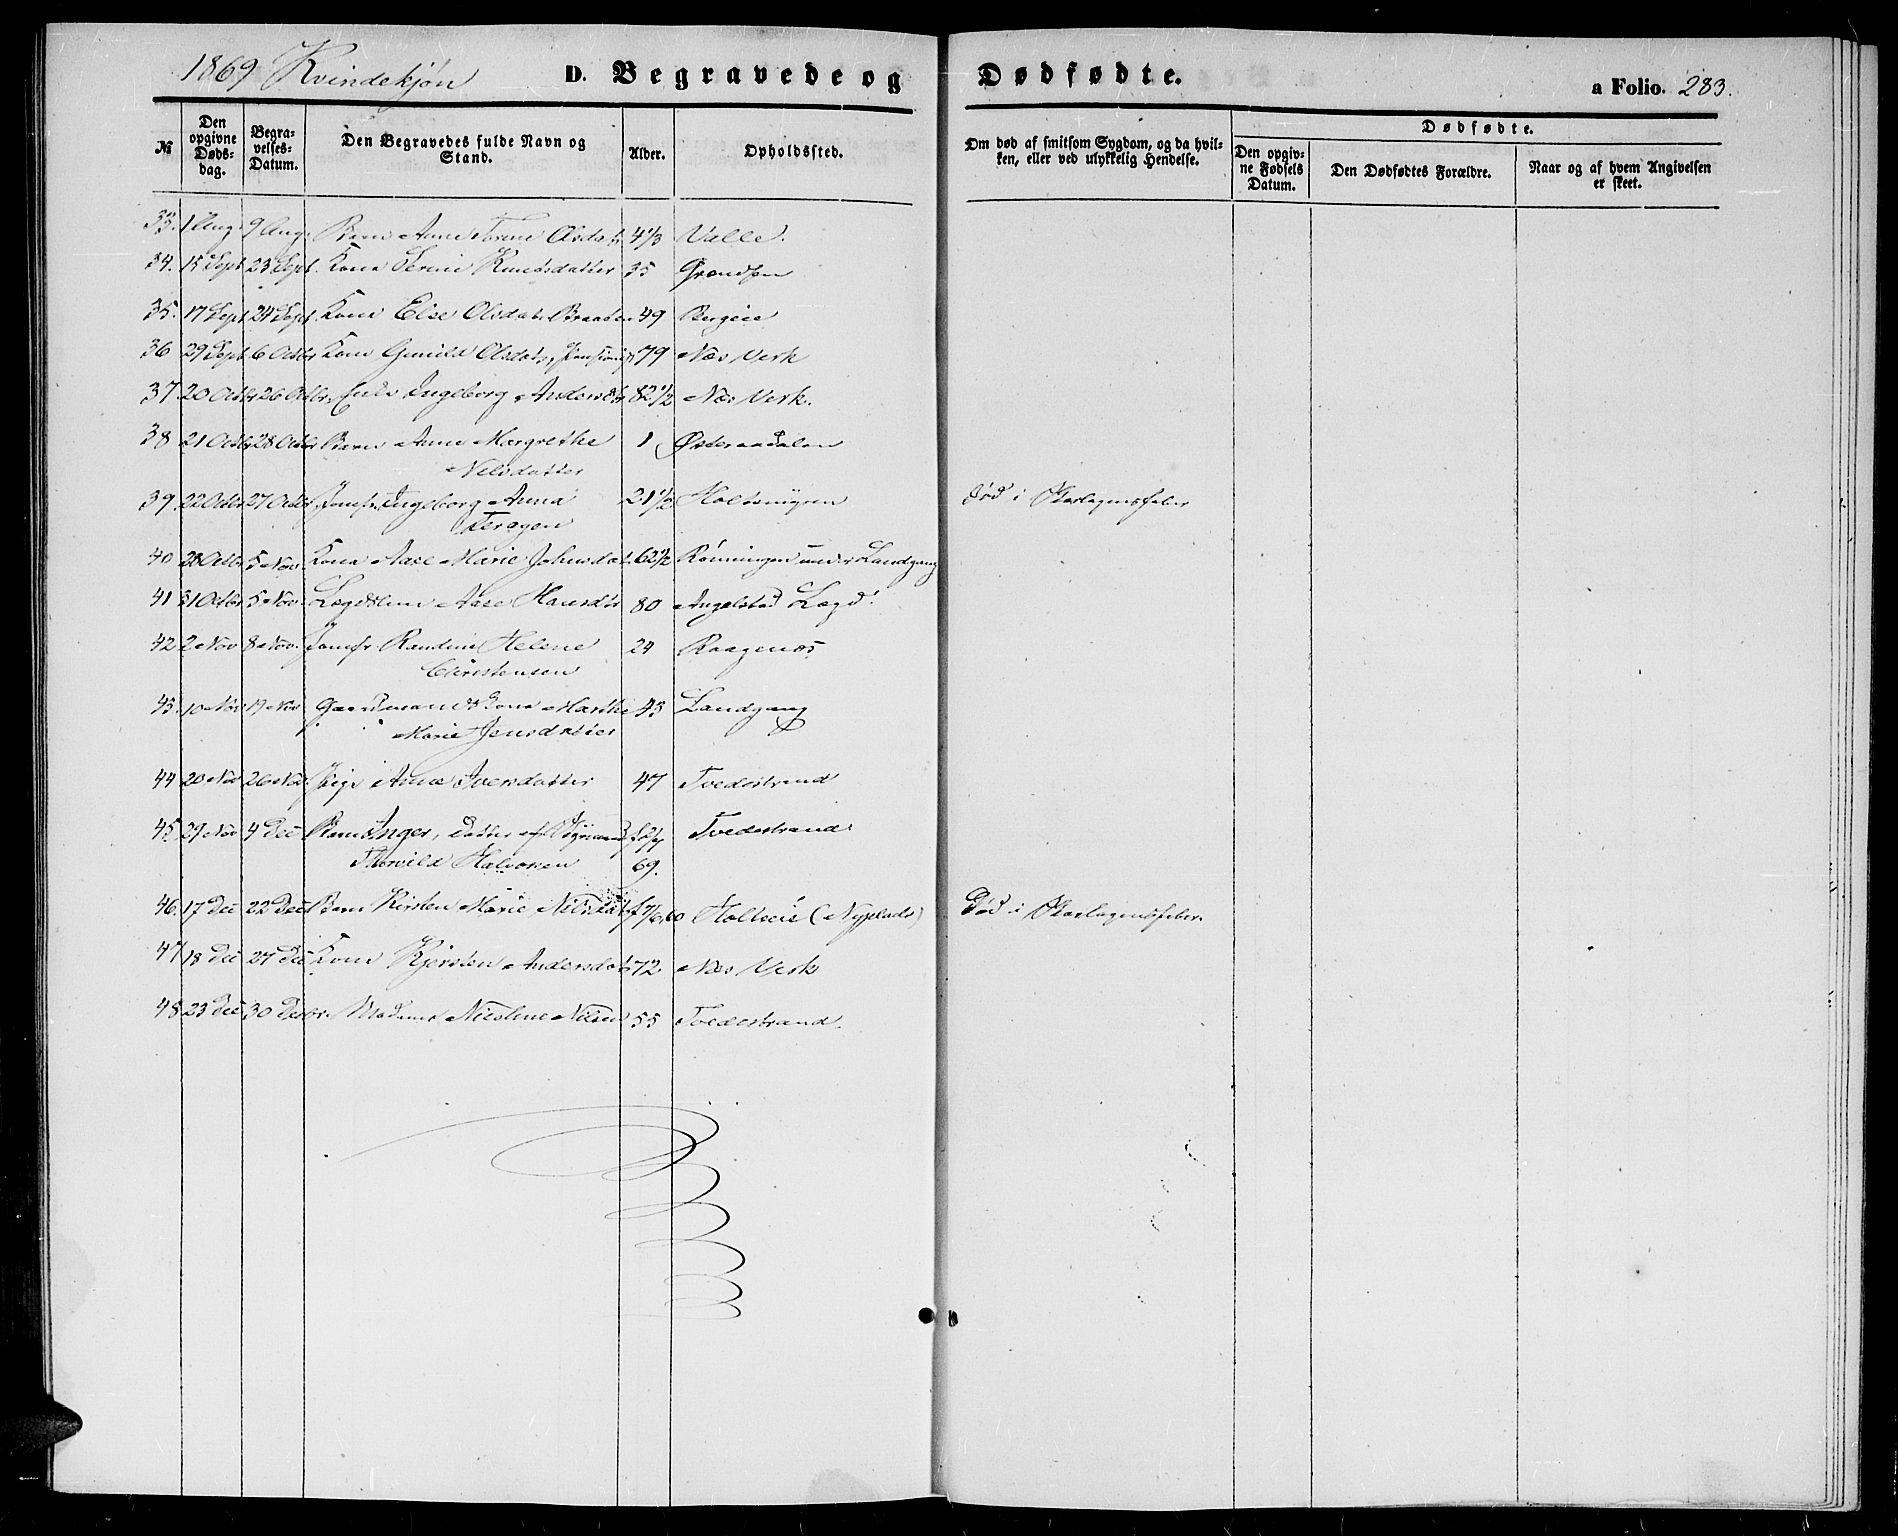 1869 Kvindekjøn D. Begravede og Dødfødte. a Folio. 283.
№ Den opgivne Døds-dag. Begra-velses-Datum. Den Begravedes fulde Navn og Stand. Alder. Opholdssted. Om død af smitsom Sygdom, og da hvil-ken, eller ved ulykkelig Hendelse. Dødfødte. Den opgiv-ne Fødsels Datum. Den Dødfødtes Forældre. Naar og af hvem Angivelsen er skeet.
33. 1 Aug. 9 Aug. Barn Anne Torine Olsdatr 4 1/3 Valle.
34. 15 Sept 23 Sept. Kona Serine Knudsdatter 35
35. 17 Sept 24 Sept. Kone Else Olsdatr Braaten 49 Bergeie
36 29 Sept 6 Octbr Kone Gunild Olsdatr, 79 Næs Verk
37. 20 Octbr 26 Octbr. Enke Ingeborg Andersdtr 82 1/2 Næs Verk.
38 21 Octbr 28 Octbr Barn Anne Margrethe 1 Østeraadalen
Nilsdatter
39. 22 Octbr 27 Octbr Jomfr. Ingeborg Anna 21 1/2 Holtsmyren Død i Skarlagensfeber
Teragen
40 28 Octbr 5 Nov. Kona Aase Marie Johnsdat. 62 1/2 Rønningen under Landgang
41 31 Octbr 5 Nov. Lægdslem Aase Hansdtr 80 Angelstad Lægd.
42 2 Nov 8 Nov. Jomfr Randine Helene 24 Kragenæs
Christensen
43. 10 Nov 17 Nov Gaardmands Kona Marthe 45 Landgang
Marie Jensdatter
44 20 Nov 26 Nov. Pige Anne Iversdatter 47 Tvedestrand
45. 29 Nov 4 Dec Barn Inger, Datter af Tvedestrand
Thorvild Halvorsen 69.
46. 17 Dec 22 Dec Barn Kirsten Marie Nilsdatr f. 7/6 60 Holteeie (Nyplads) Død i Skarlagensfeber.
47 18 Dec 27 Dec Kone Kjersten Andersdatr 72 Næs Verk
48 23 Dec 30 Decbr. Madame Nicoline Nilsen 55 Tvedestrand.